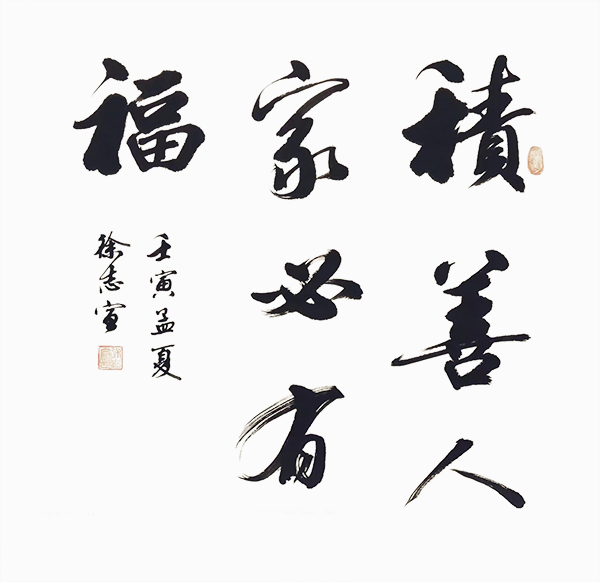 積善人
家必有
福
壬寅孟夏
徐志宣